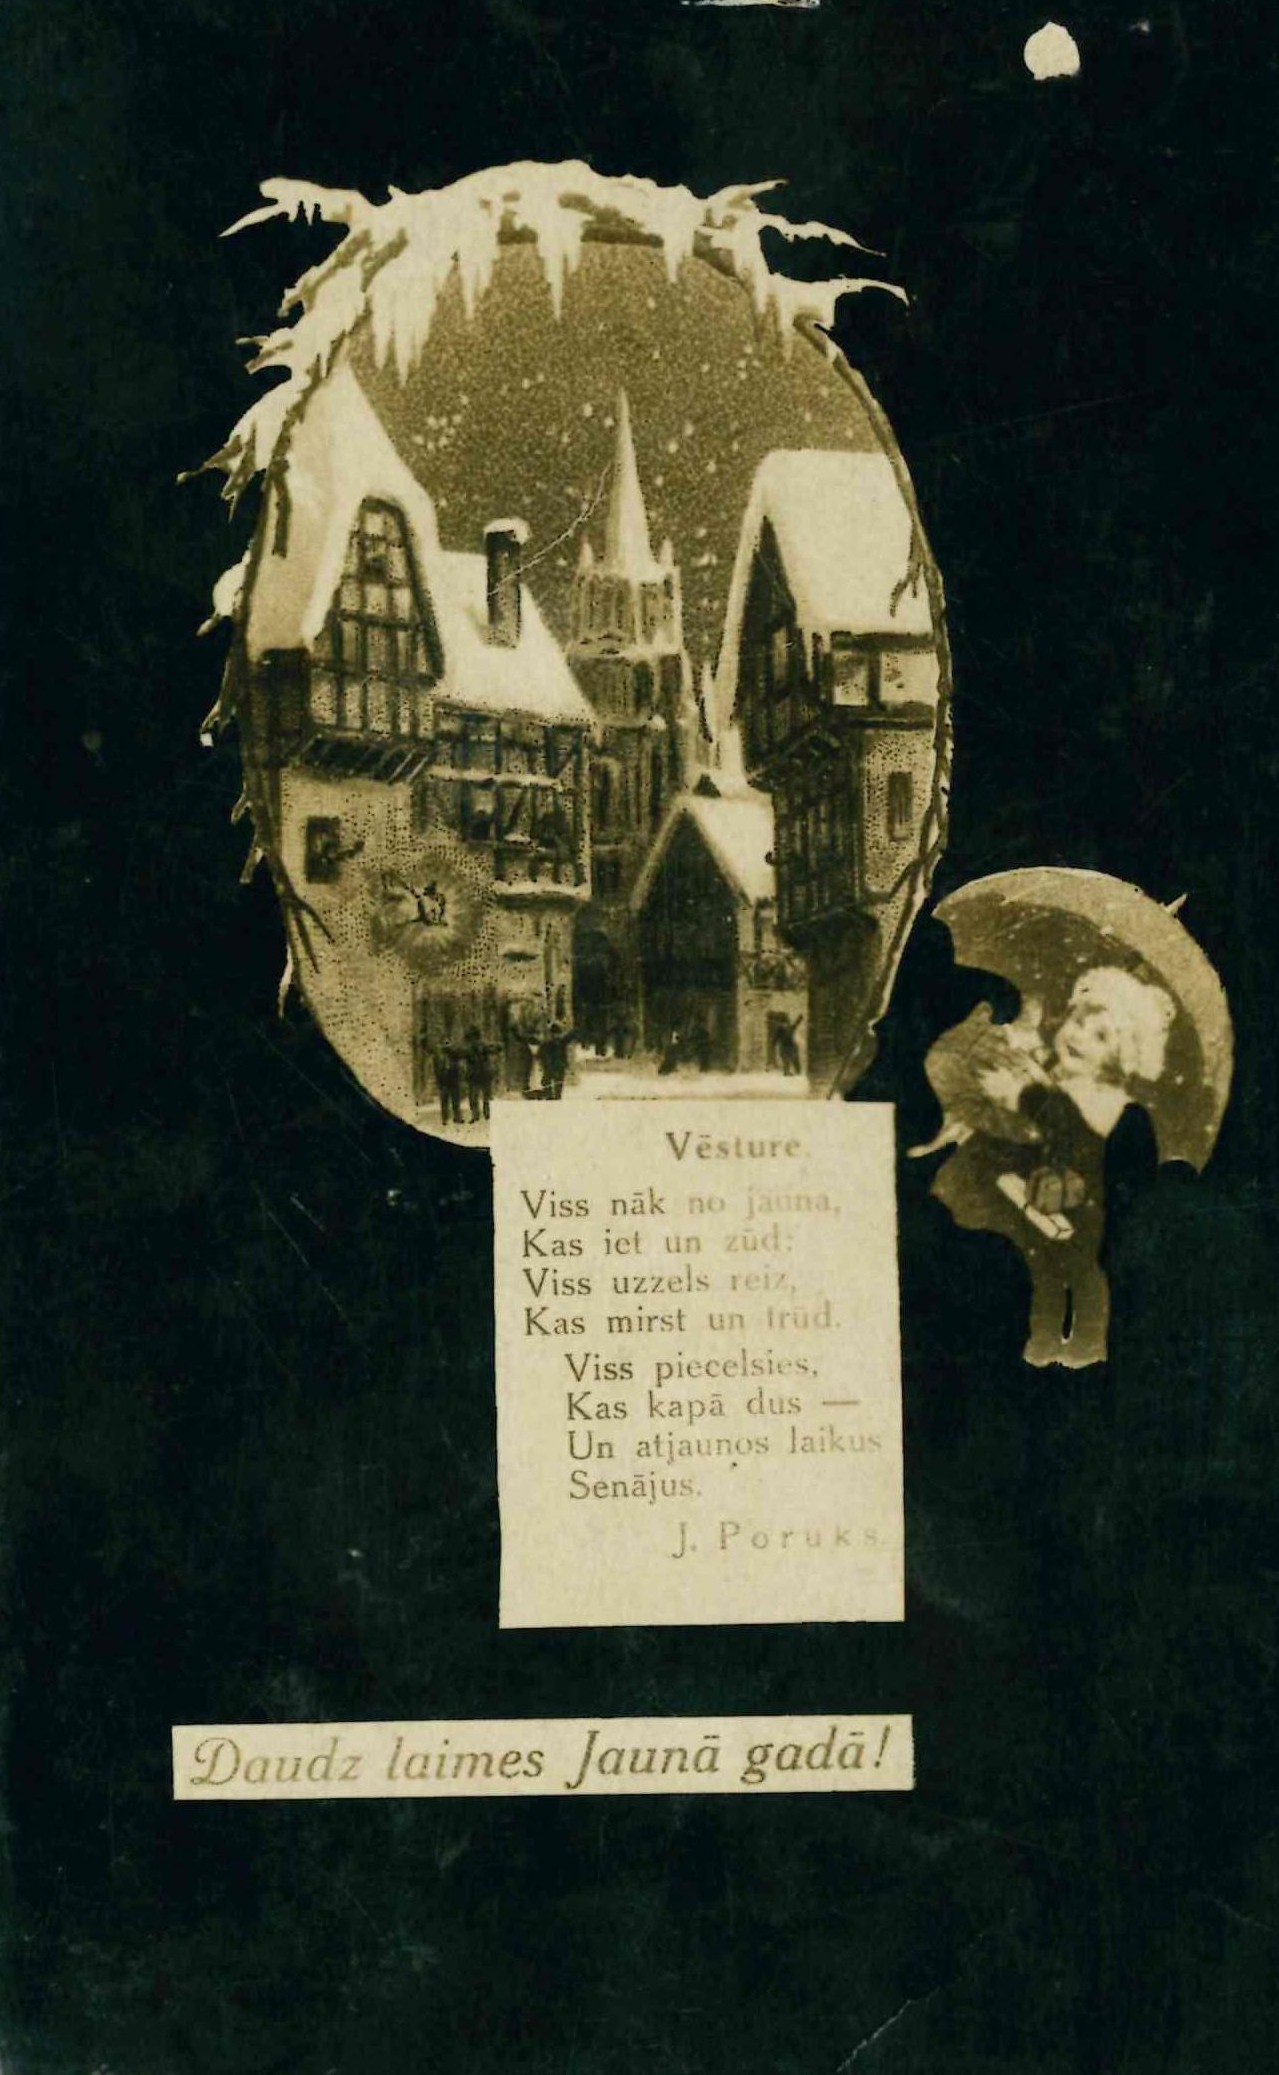 Vēsture.
Viss nāk no jauna,
Kas iet un zūd:
Viss uzzels reiz,
Kas mirst un trūd.
Viss piecelsies,
Kas kapā dus —
Un atjaunos laikus
Senājus.
J. Poruks.
Daudz laimes Jaunā gadā!